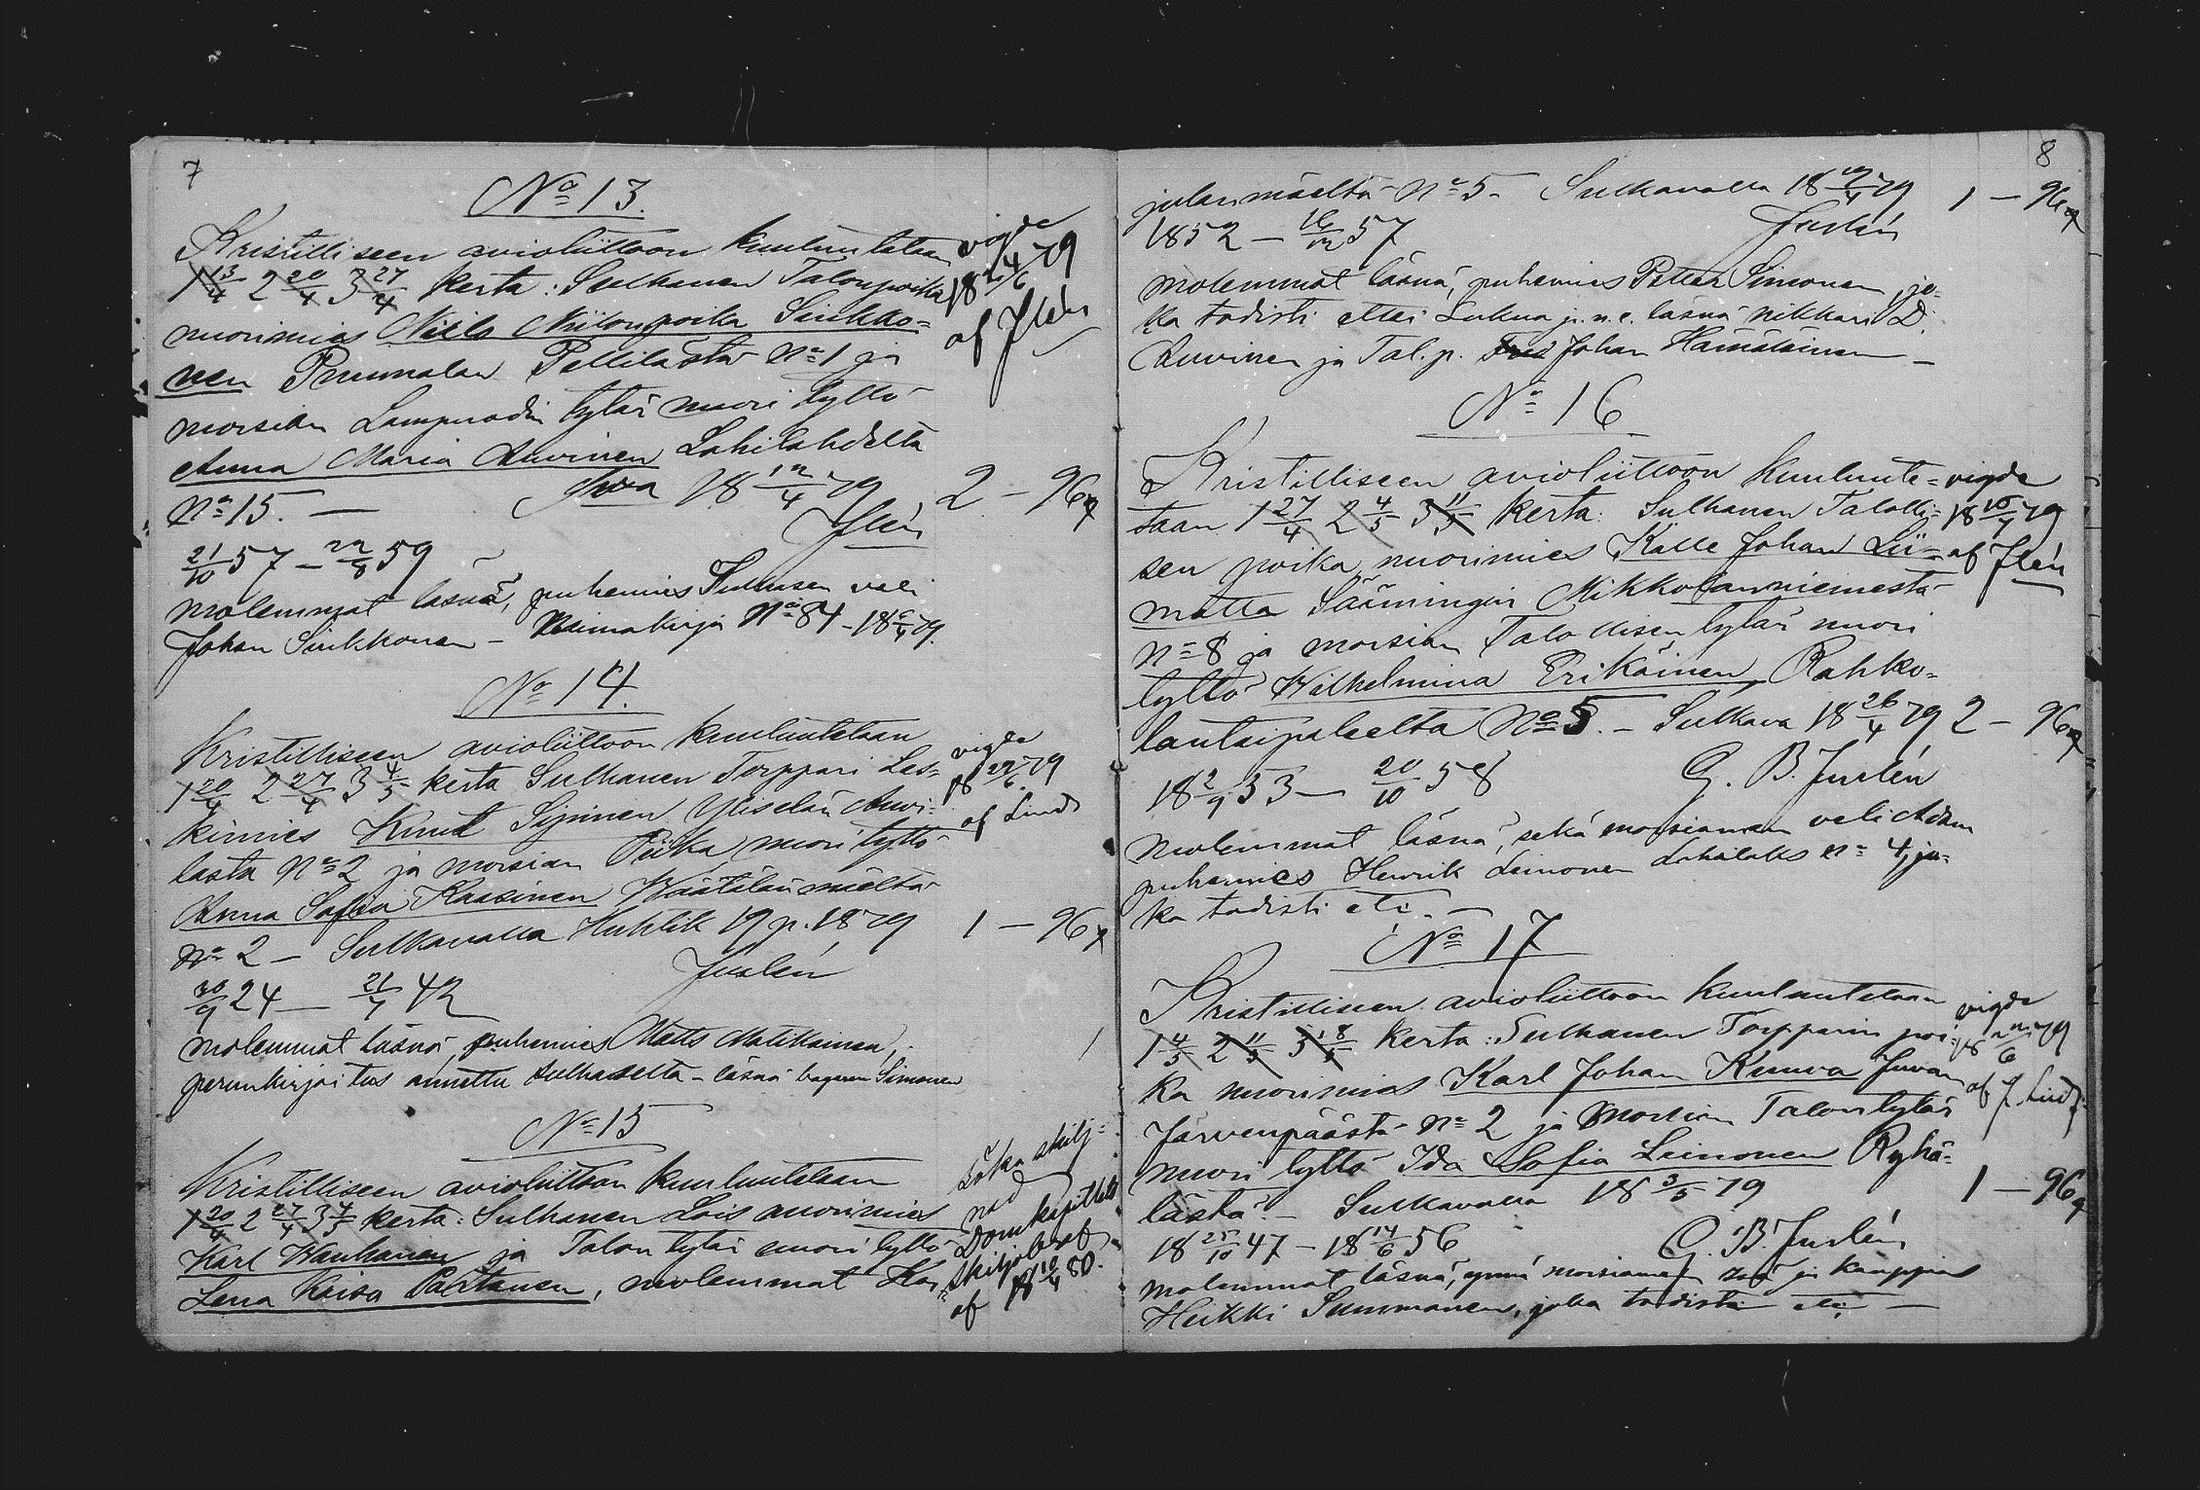 7
No 13.
Kristilliseen avioliittoon kuulutetaan
1 13/4 2 20/4 3 27/4 kerta: Sulhanen Talonpoika
nuorimies Niilo Niilonpoika Sinkko=
nen Puumalan Pellilästä No 1 ja
morsian Lampuodin tytär nuori tyttö
Anna Maria Auvinen Lohilahdelta
No 15. — 18 12/4 79
21/10 57 — 22/8 59
molemmat läsnä, puhemies Sulhasen veli
Johan Sinkkonen — Naimakirja No 84 - 18 6/4 79.
vigde
18 24/6 79
af Jlén
2 — 96
Jlén
No 14.
Kristilliseen avioliittoon kuulutetaan
1 20/4 2 27/4 3 4/5 kerta Sulhanen Torppari Les=
kimies Knut Sijninen Yliselän Auvi=
lasta No 2 ja morsian Piika nuori tyttö
Anna Sofia Kaasinen Väätälänmäeltä
No 2 — Sulkavalla Huhtik 19 p. 1879
Juslén
30/9 24 — 21/7 42
molemmat läsnä, puhemies Matts Matikainen,
perunkirjoitus annettu sulhaselta — läsnä Simonen
vigde
18 22/6 79
af Lind
1 — 96
No 15
Kristilliseen avioliittoon kuulutetaan
1 20/4 2 27/4 3 4/5 kerta: Sulhanen Lois nuorimies
Karl Wanhanen ja Talon tytär nuori tyttö
Lena Kaisa Partanen, molemmat Kar=
Söka skilj=
nad
Domkapitlets
skiljobref
af 18 10/4 80.
8
julanmäeltä No 5. Sulkavalla 18 19/4 79
1852 — 16/12 57
Juslén
1 — 96
molemmat läsnä, puhemies Petter Simonen, jo=
ka todisti ettei Lukua j.n.e. läsnä nikkari D.
Auvinen ja Tal.p. Johan Hämäläinen —
No 16
Kristilliseen avioliittoon kuulute=
taan 1 27/4 2 4/5 3 11/5 kerta: Sulhanen Talolli=
sen poika nuorimies Kalle Johan Lii=
matta Säämingin Mikkolanniemestä
No 8 ja morsian Talollisen tytär nuori
tyttö Wilhelmina Erikäinen Rahko=
lantaipaleelta No 5. — Sulkava 18 26/4 79
18 2/9 53 — 20/10 58
G. B. Juslén
molemmat läsnä, sekä morsiamen veli Adam
puhemies Henrik Leinonen Lohilaks No 4, jo=
ka todisti etc. —
vigde
18 16/7 79
af Jlén
2 — 96
No 17
Kristilliseen avioliittoon kuulutetaan
1 4/5 2 11/5 3 18/5 kerta: Sulhanen Torpparin poi=
ka nuorimies Karl Johan Kunva Juvan
Järvenpäästä No 2 ja morsian Talon tytär
nuori tyttö Ida Sofia Leinonen Ryhä=
lästä. — Sulkavalla 18 3/5 79
18 25/10 47 — 18 14/6 56
G. B. Juslén
molemmat läsnä, ynnä morsiamen isä ja kauppias
Heikki Summanen, joka todisti etc. —
vigde
18 22/6 79
af J. Lind
1 — 96